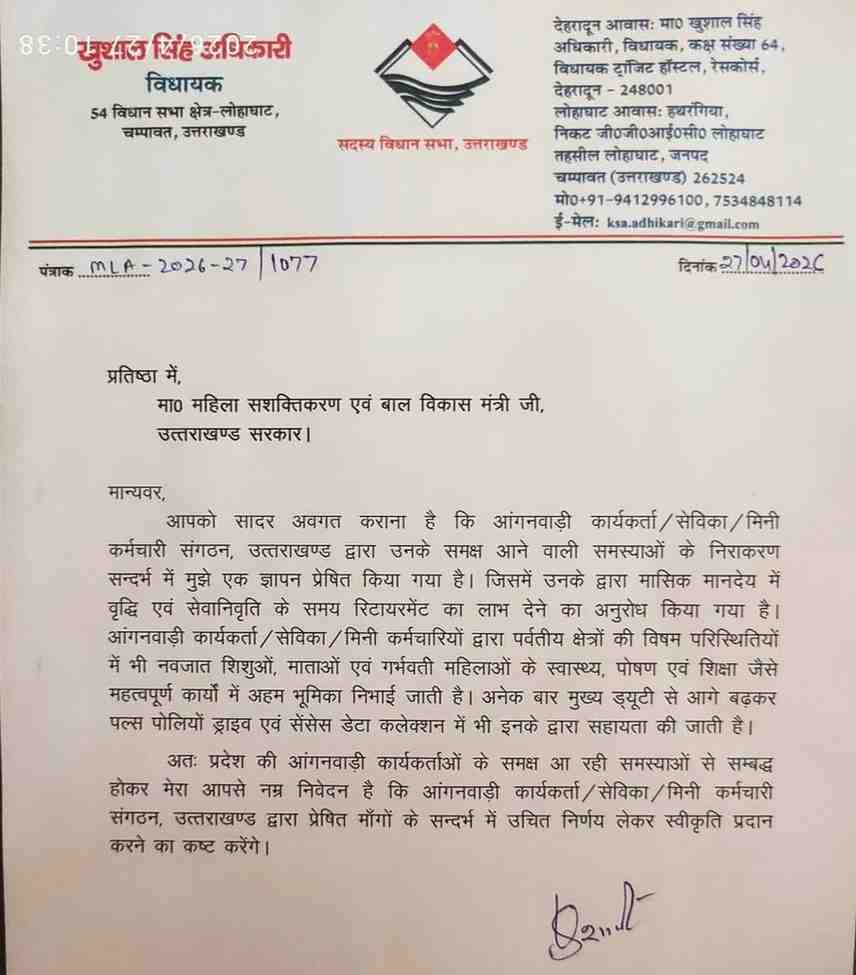 खुशाल सिंह अधिकारी
विधायक
54 विधान सभा क्षेत्र-लोहाघाट,
चम्पावत, उत्तराखण्ड
सदस्य विधान सभा, उत्तराखण्ड
देहरादून आवास: मा0 खुशाल सिंह
अधिकारी, विधायक, कक्ष संख्या 64,
विधायक ट्रांजिट हॉस्टल, रेसकोर्स,
देहरादून - 248001
लोहाघाट आवास: हथरंगिया,
निकट जी0जी0आई0सी0 लोहाघाट
तहसील लोहाघाट, जनपद
चम्पावत (उत्तराखण्ड) 262524
मो0+91-9412996100, 7534848114
ई-मेल: ksa.adhikari@gmail.com
पंत्राक MLA-2026-27/1077
दिनांक 27/04/2026
प्रतिष्ठा में,
मा0 महिला सशक्तिकरण एवं बाल विकास मंत्री जी,
उत्तराखण्ड सरकार।
मान्यवर,
आपको सादर अवगत कराना है कि आंगनवाड़ी कार्यकर्ता/सेविका/मिनी
कर्मचारी संगठन, उत्तराखण्ड द्वारा उनके समक्ष आने वाली समस्याओं के निराकरण
सन्दर्भ में मुझे एक ज्ञापन प्रेषित किया गया है। जिसमें उनके द्वारा मासिक मानदेय में
वृद्धि एवं सेवानिवृति के समय रिटायरमेंट का लाभ देने का अनुरोध किया गया है।
आंगनवाड़ी कार्यकर्ता/सेविका/मिनी कर्मचारियों द्वारा पर्वतीय क्षेत्रों की विषम परिस्थितियों
में भी नवजात शिशुओं, माताओं एवं गर्भवती महिलाओं के स्वास्थ्य, पोषण एवं शिक्षा जैसे
महत्वपूर्ण कार्यो में अहम भूमिका निभाई जाती है। अनेक बार मुख्य ड्यूटी से आगे बढ़कर
पल्स पोलियों ड्राइव एवं सेंसेस डेटा कलेक्शन में भी इनके द्वारा सहायता की जाती है।
अतः प्रदेश की आंगनवाड़ी कार्यकर्ताओं के समक्ष आ रही समस्याओं से सम्बद्ध
होकर मेरा आपसे नम्र निवेदन है कि आंगनवाड़ी कार्यकर्ता/सेविका/मिनी कर्मचारी
संगठन, उत्तराखण्ड द्वारा प्रेषित माँगों के सन्दर्भ में उचित निर्णय लेकर स्वीकृति प्रदान
करने का कष्ट करेंगे।